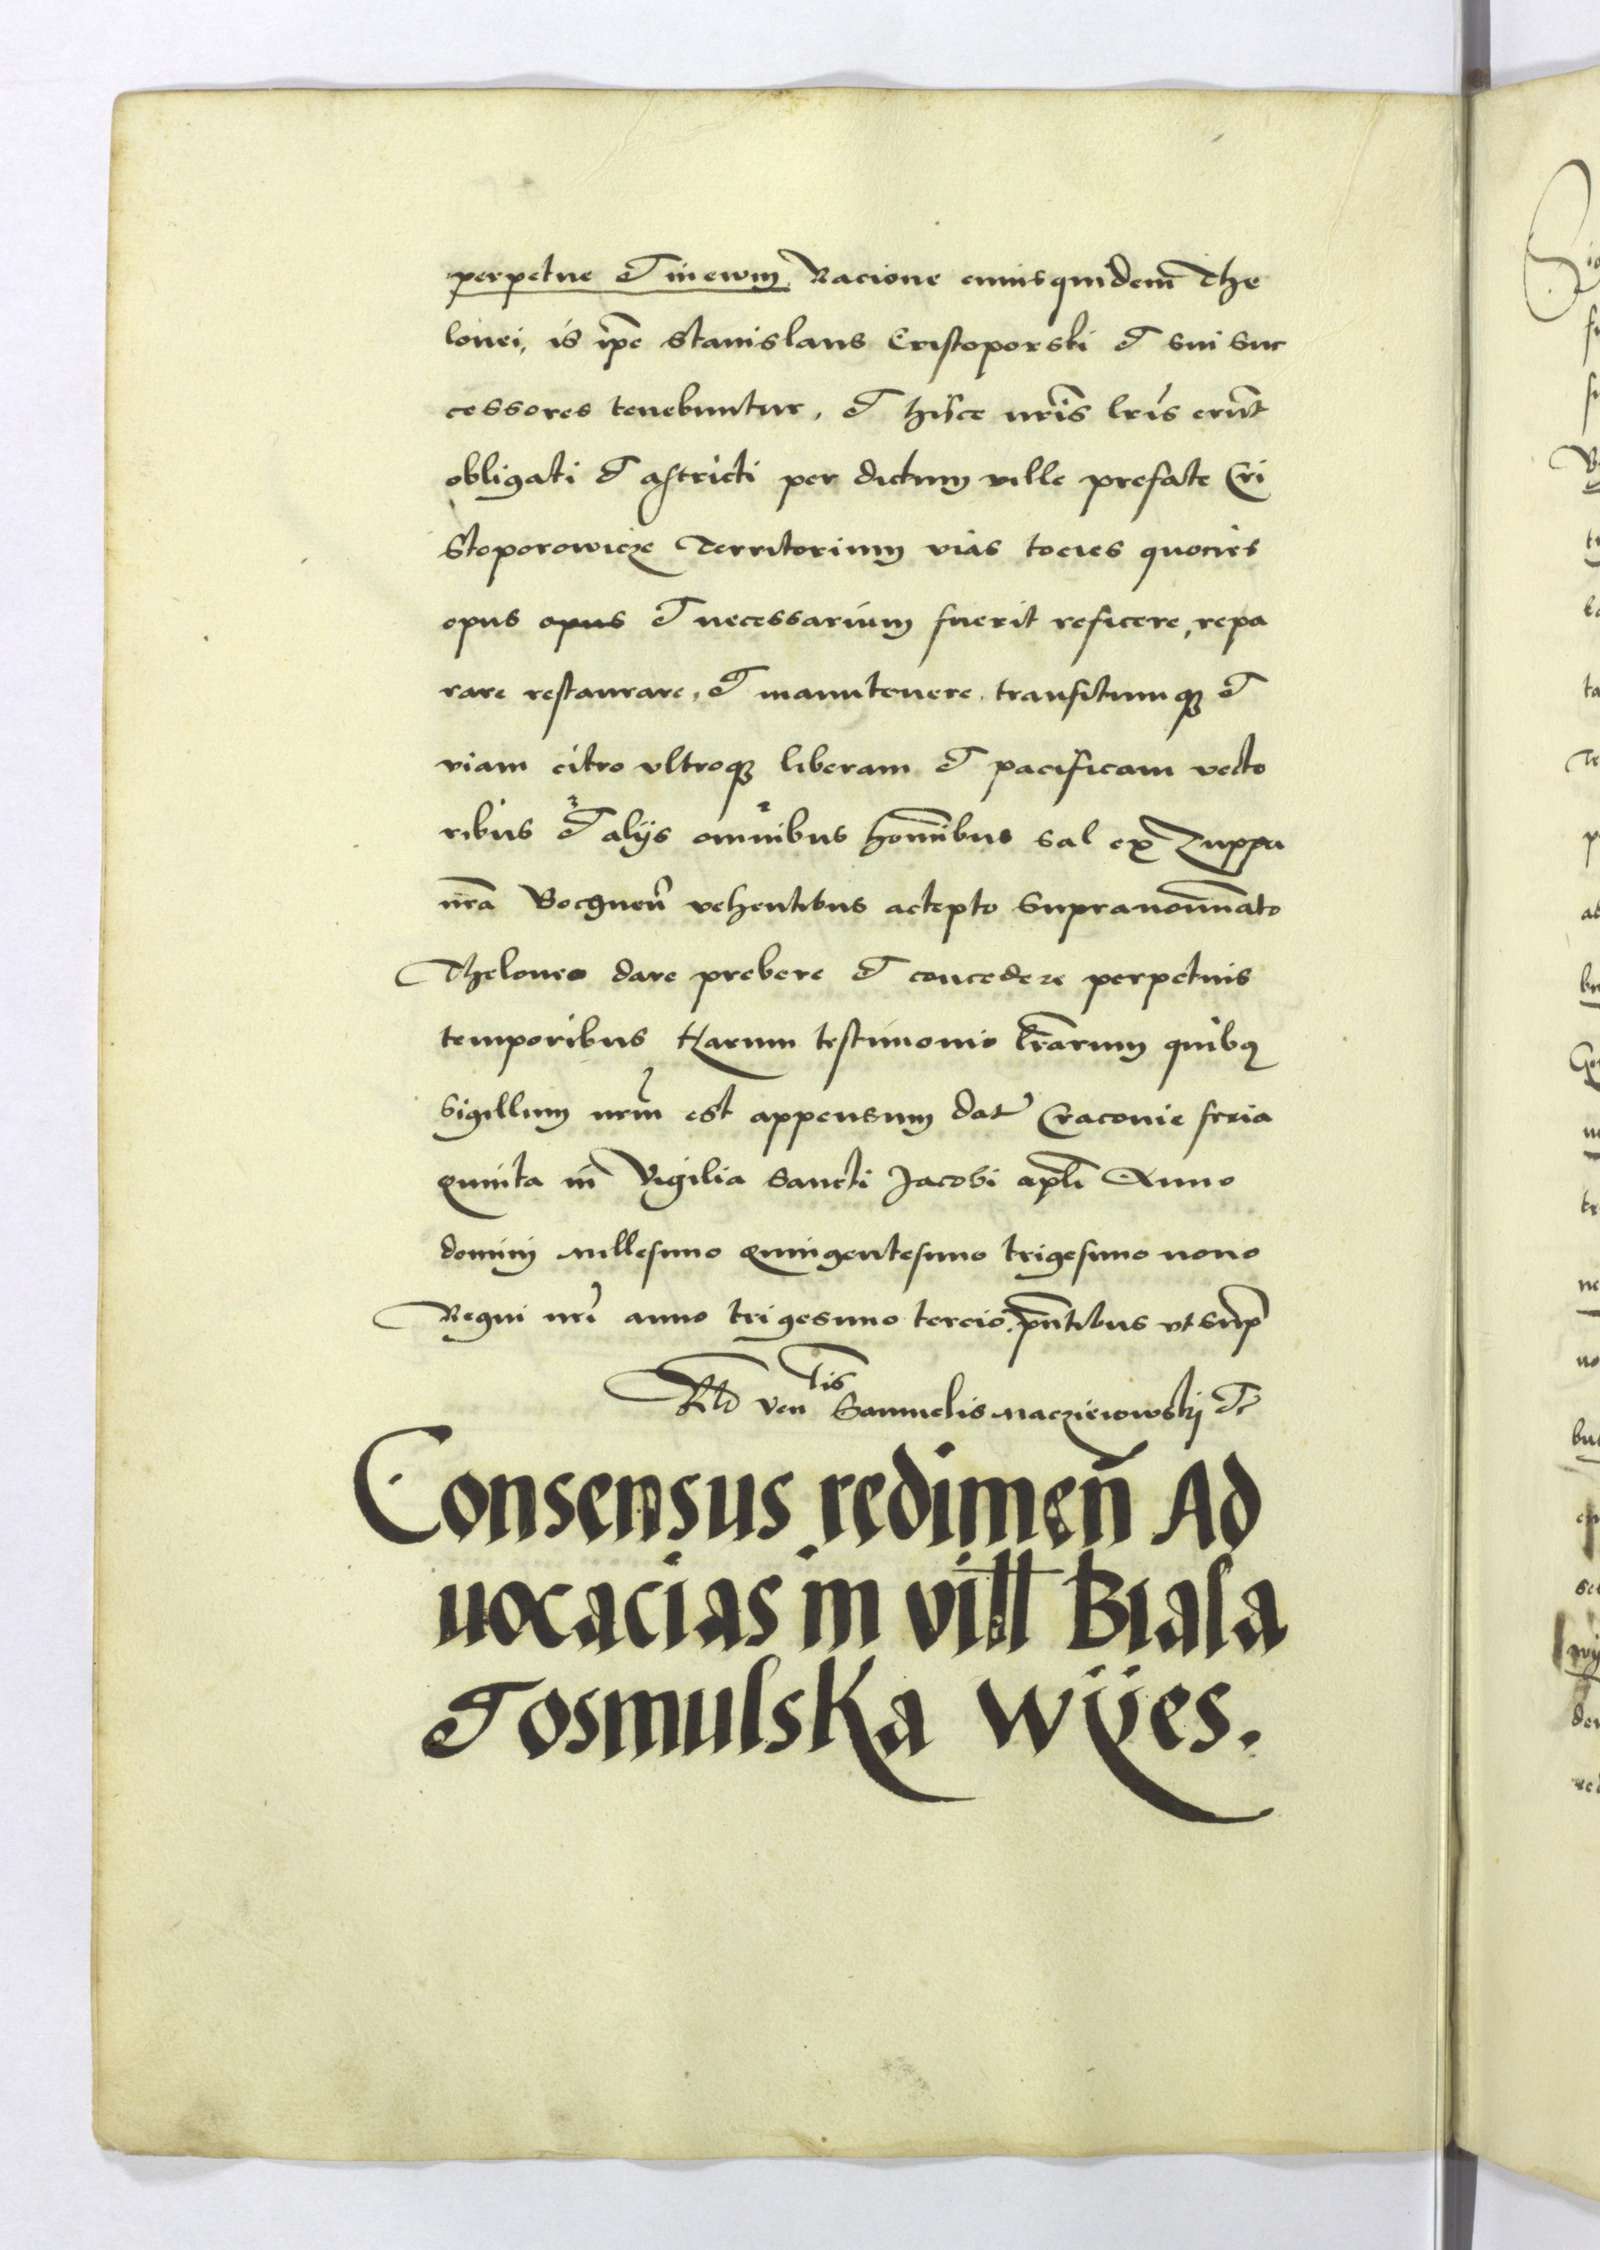 perpetue et in ewm Racione cuiusquidem The
lonei, is ipe Stanislaus Cristoporski et sui suc
cessores tenebuntur, et hisce nris lris erunt
obligati et astricti per dictum ville prefate Cri
stoporowicze Territorium vias tocies quocies
opus opus et necessarium fuerit reficere, repa
rare restaurare, et manutenere. transitumq et
viam citro vltroq liberam et pacificam vecto
ribus et alijs omnibus hominibus sal ex Zuppa
nra Bocgnen vehentibus accepto supranominato
Theloneo dare prebere et concedere perpetuis
temporibus Harum testimonio lrarum quibq
sigillum nrm est appensum dat Cracovie feria
quinta in Vigilia Sancti Jacobi apli Anno
domini millesimo quingentesimo trigesimo nono
Regni nri anno trigesimo tercio. pntibus vt sup
Rlo ven lis Samuelis maczieiowskij etc
Consensus redimen Ad
uocacias in vill Biala
Tosmulska wyes.